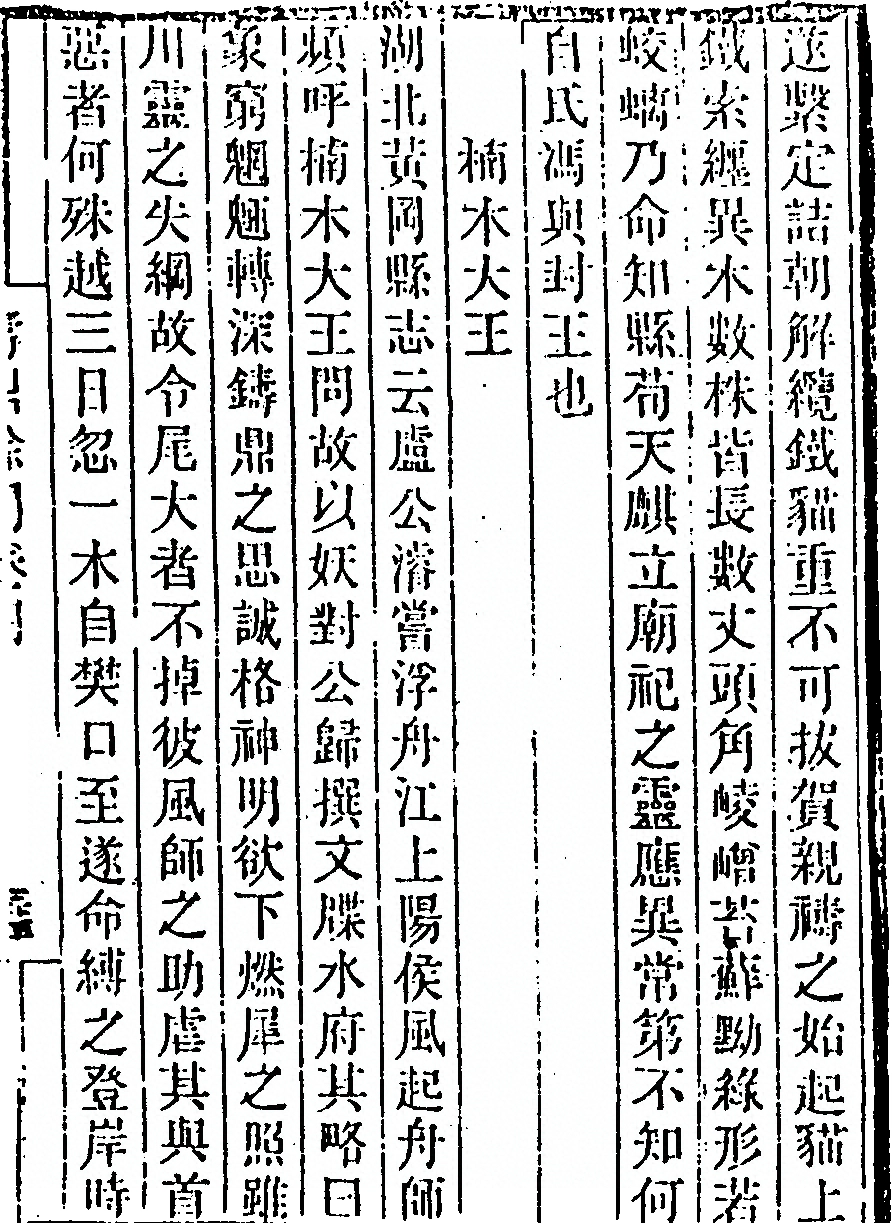 遂繫定詰朝解纜鐵貓重不可拔賀親禱之始起貓上
鐵索纏異木數株皆長數丈頭角崚嶒苔蘚黝綠形若
蛟螭乃命知縣苟天麒立廟祀之靈應異常第不知何
自氏馮與封王也
楠木大王
湖北黃岡縣志云盧公濬嘗浮舟江上陽侯風起舟師
頻呼楠木大王問故以妖對公歸撰文牒水府其略曰
象窮魍魎轉深鑄鼎之思誠格神明欲下燃犀之照雖
川靈之失綱故令尾大者不掉彼風師之助虐其與首
惡者何殊越三日忽一木自樊口至遂命縛之登岸時